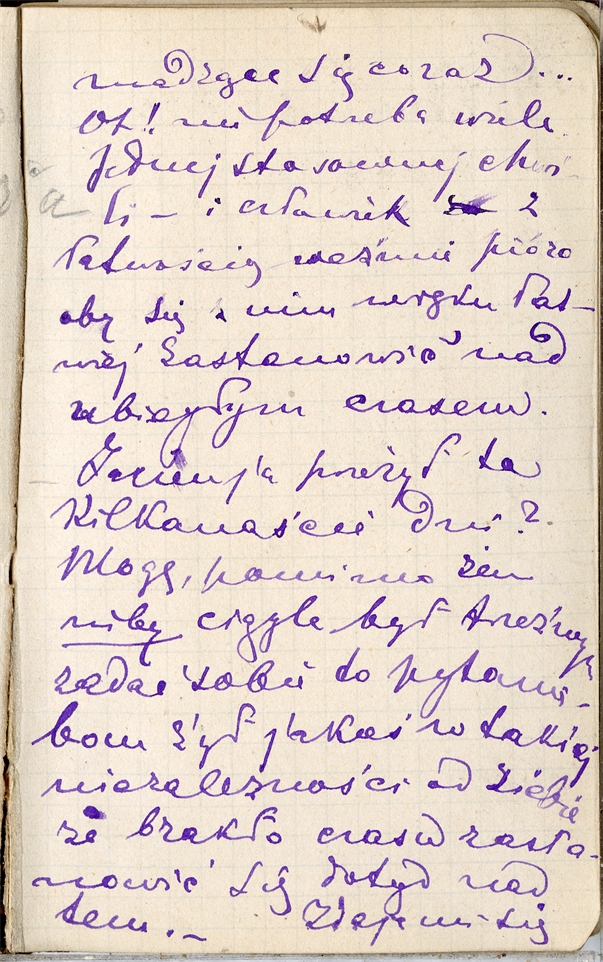 mądrzące się coraz...
Ot! nie potreba wiele
Jednej stosownej chwi-
li – i człowiek z
łatwością weźmie pióro
aby się z nim mógł łat-
wiej zastanowić nad
ubiegłym czasem.
ja przeżył te
Kilkanaście Dni?
Mogę, pomimo żem
niby ciągle był trzeźwym
zadać sobie to pytanie-
bom żył jakoś w takiej
niezależności od siebie
że brakło czasu zasta-
nowić się dotąd nad
tem. – Zdaje mi się